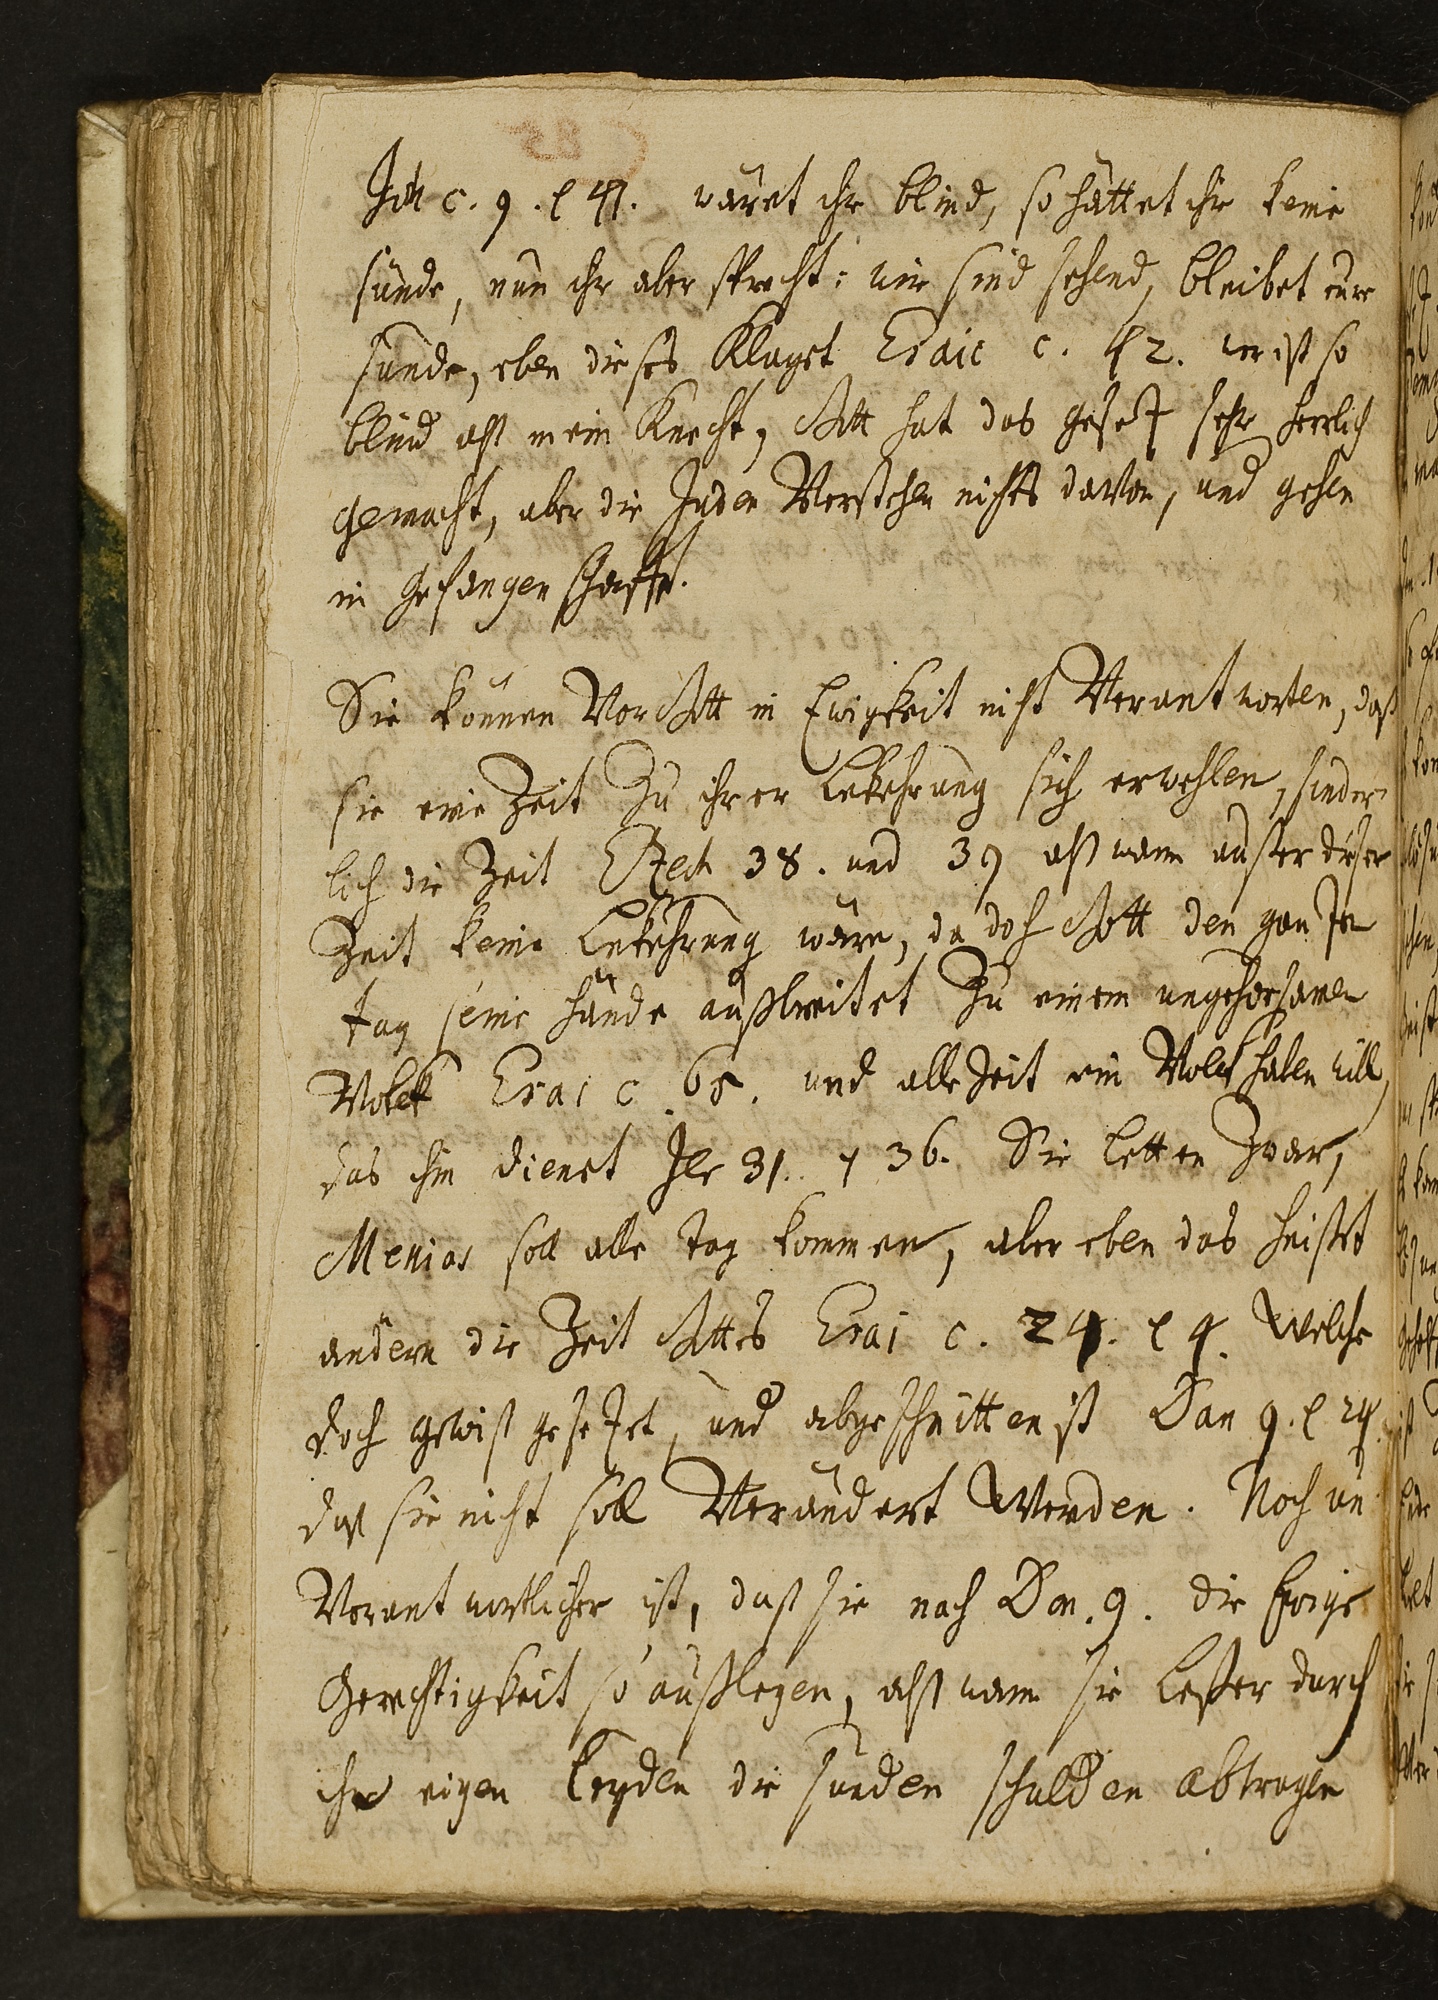 Joh c. 9. ℓ 41. wäret ihr blind, so hättet ihr keine
sünde, nun ihr aber sprecht: wir sind sehend, bleibet eure
sünde, eben dieses klaget Esaie c. 42. wer ist so
blind alß mein Knecht, Gott hat das gesetz sehr herrlich
gemacht, aber die Juden Verstehen nichts davon, und gehen
in gefangenschafft.
Sie können Vor Gott in Ewigkeit nicht Verantworten, daß
sie eine Zeit Zu ihrer bekehrung sich erwehlen, sonder
lich die Zeit Ezech 38. und 39 alß wann außer dieser
Zeit keine bekehrung wäre, da doch Gott den gantzen
tag seine hände außbreitet Zu einem ungehorsamen
Volck Esai c 65. und alle Zeit ein Volck haben will,
das ihm dienet Jer 31. 36. Sie betten zwar,
Messias soll alle tag kommen, aber eben das heißet
ändern die Zeit Gottes Esai c. 24. ℓ 4. Welche
doch gewiß gesetzet, und abgeschnitten ist Dan 9. ℓ 24.
daß sie nicht soll Verändert Werden. Noch un
Verantwortlicher ist, daß sie nach Dan. 9. die Ewige
Gerechtigkeit so außlegen, alß wann sie beßer durch
ihr eigen Leyden die sünden schulden abtragen